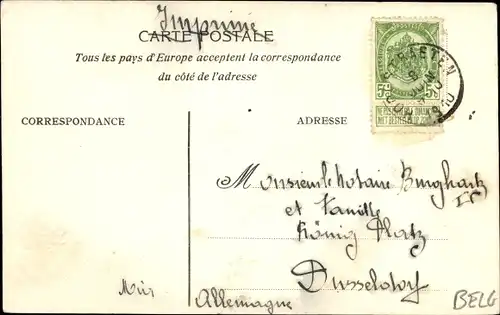 Imprimé
CARTE POSTALE
Tous les pays d'Europe acceptent la correspondance
du côté de l'adresse
CORRESPONDANCE
ADRESSE
Monsieur le Notaire
et Famille
König Platz
Düsseldorf
Allemagne
BELG